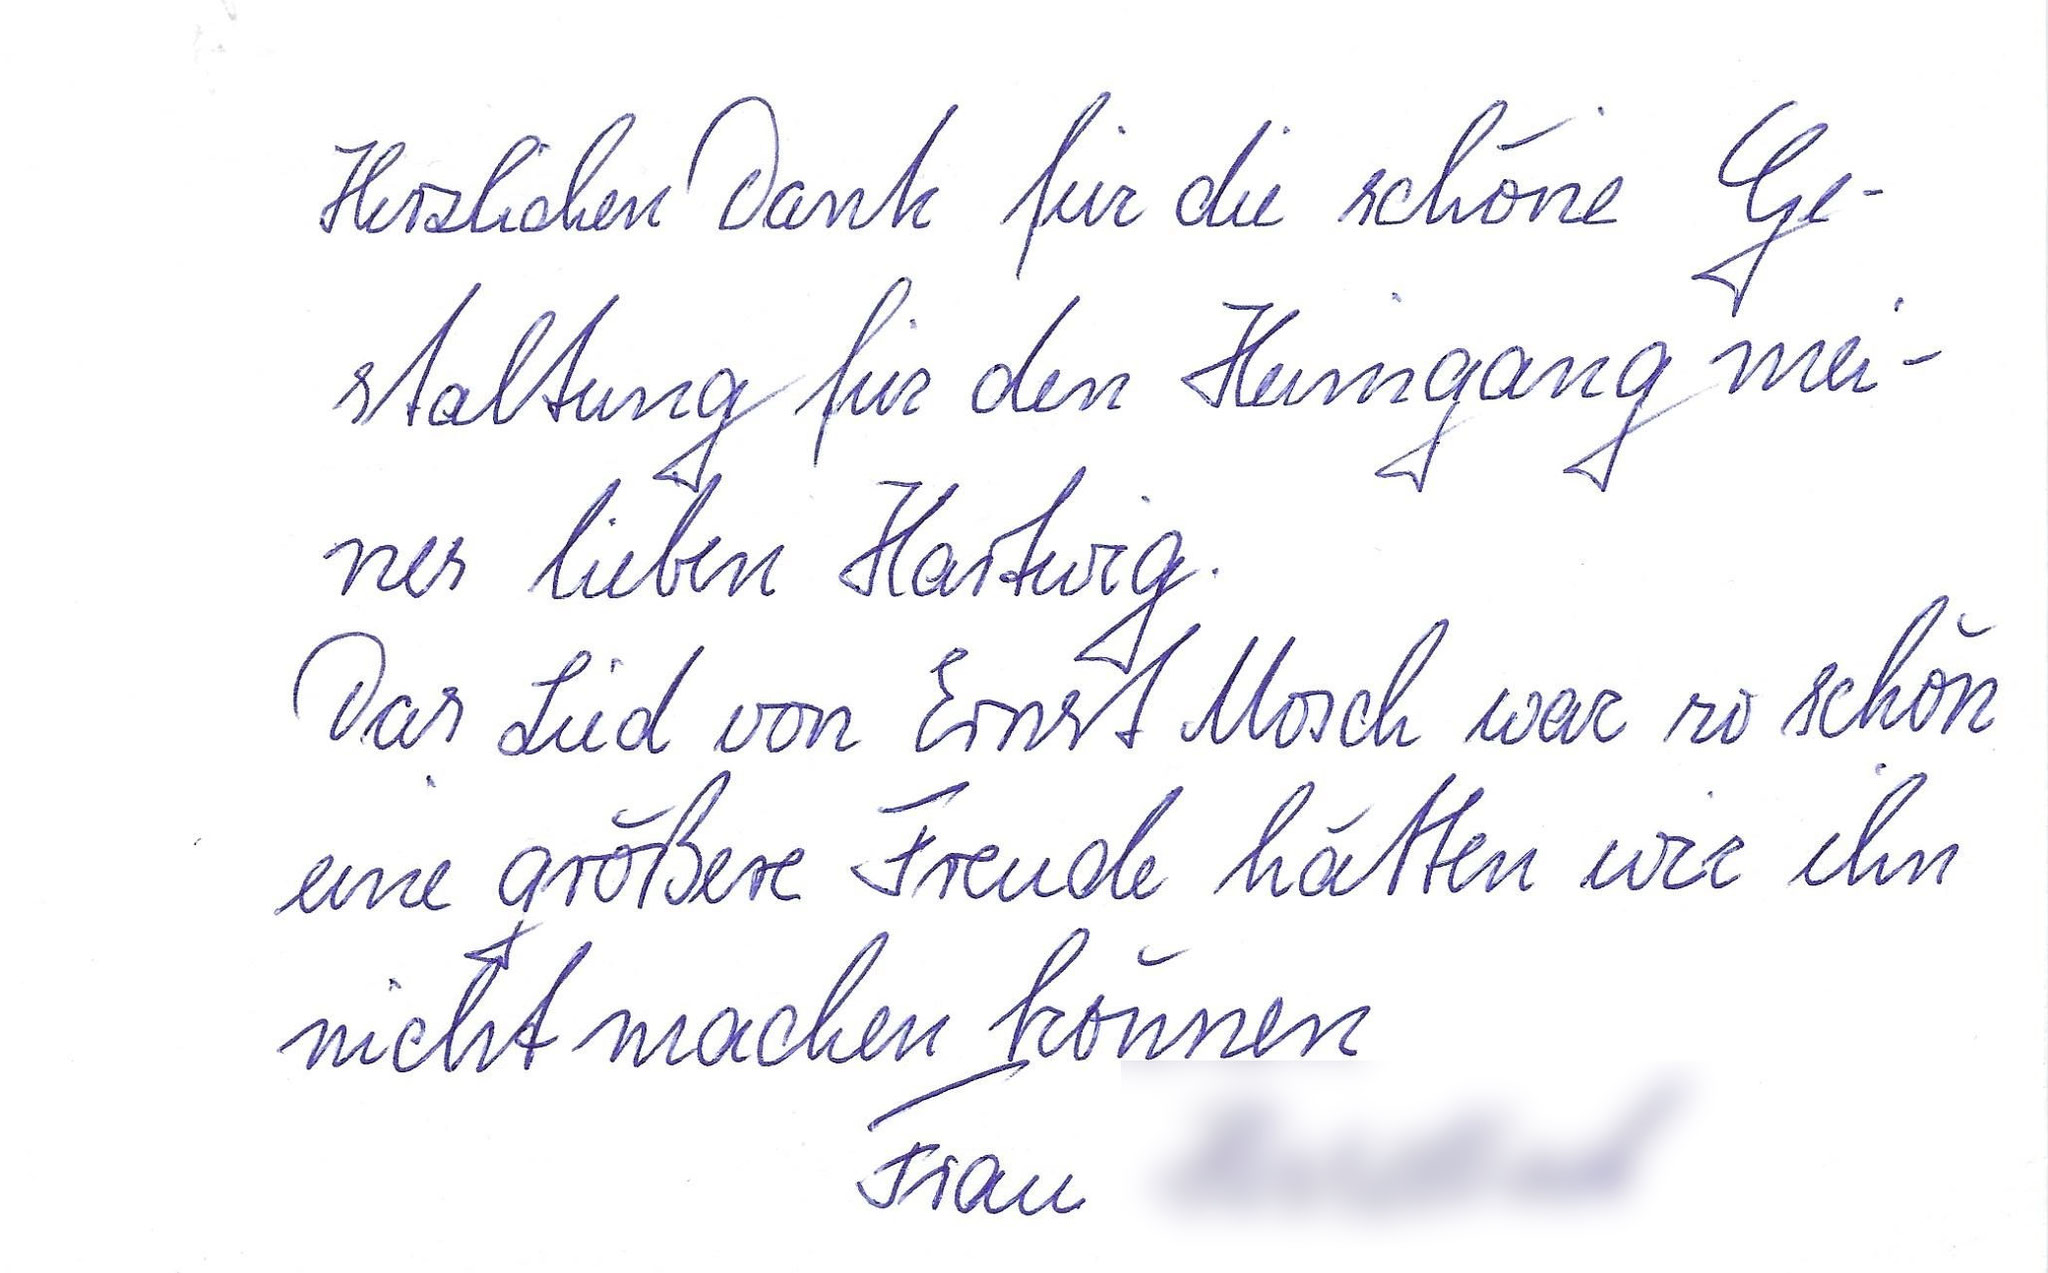 Herzlichen Dank für die schöne Ge-
staltung für den Heimgang mei-
ner lieben Hartwig.
Das Lied von Ernst Mosch war so schön
eine größere Freude hätten wir ihn
nicht machen können
Frau